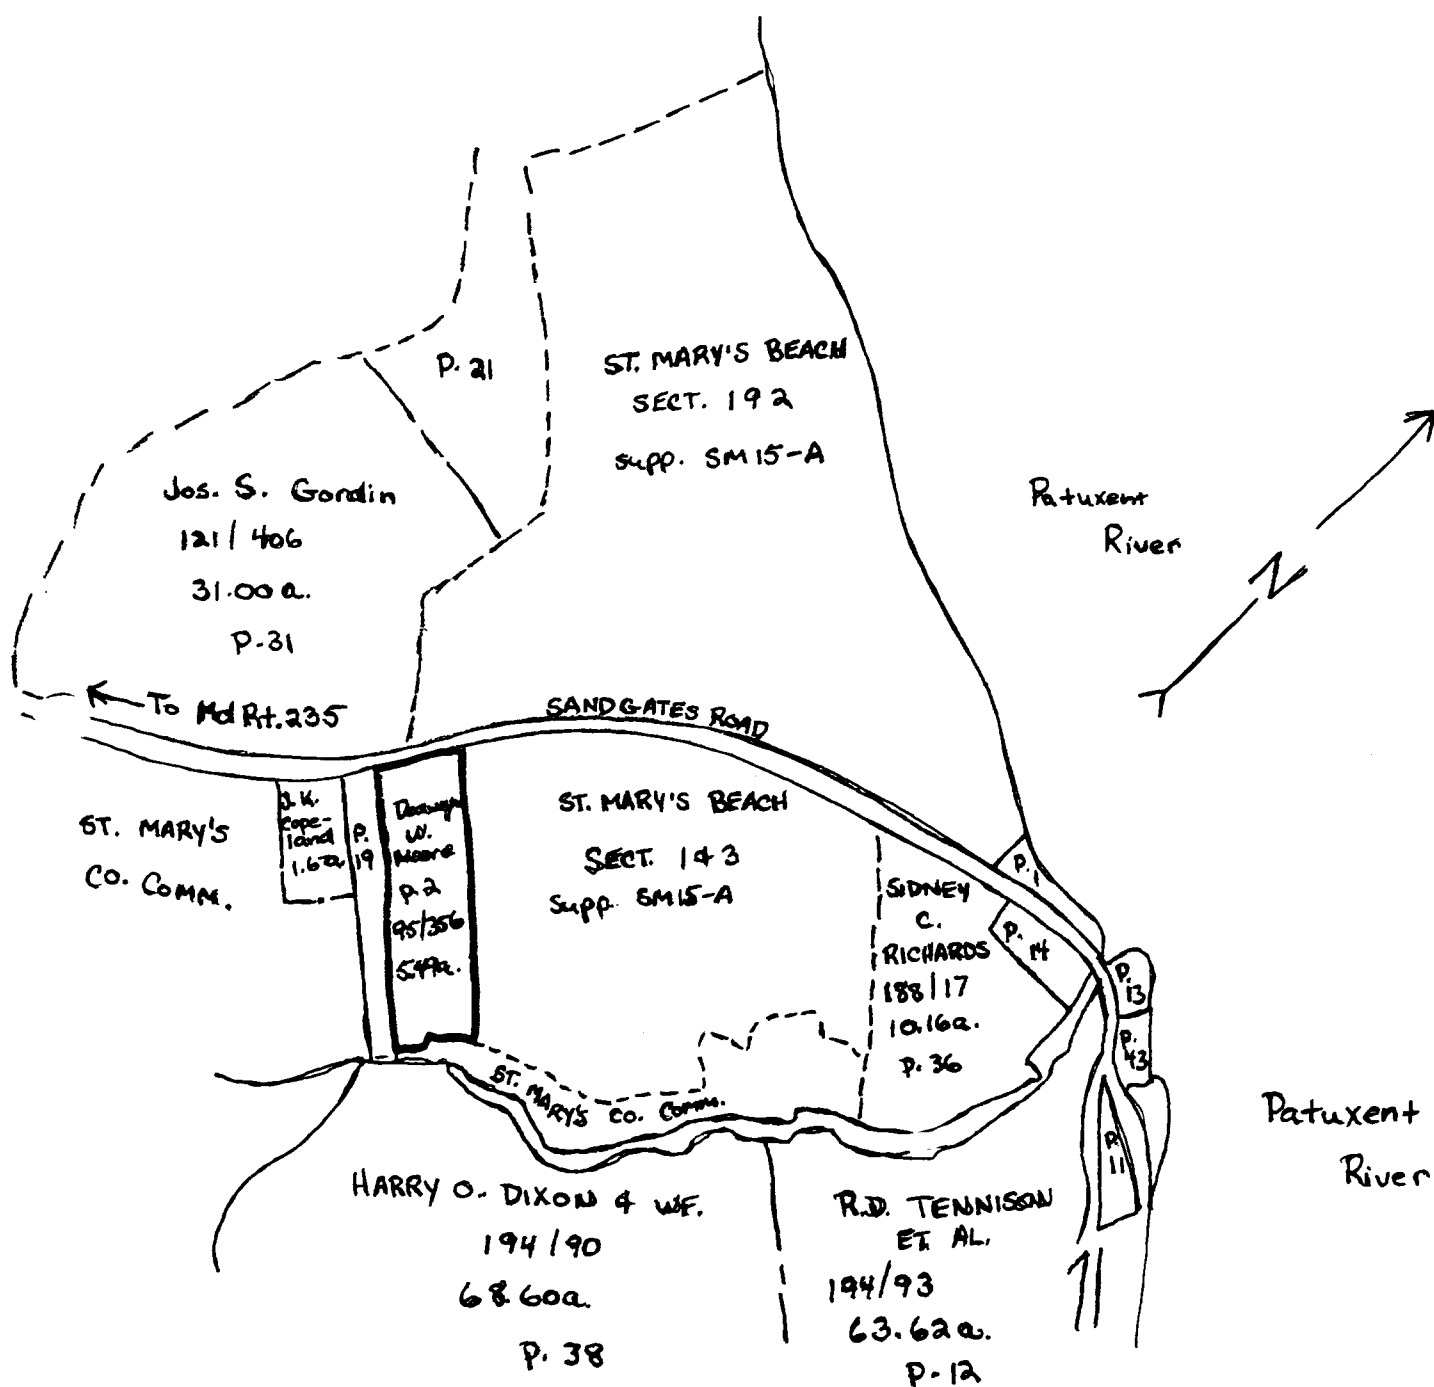 P. 21
ST. MARY'S BEACH
SECT. 1 9 2
supp. SM15-A
Jos. S. Gordin
121/406
31.00a.
P-31
Patuxent
River
N
To Md Rt. 235
SANDGATES ROAD
ST. MARY'S
CO. COMM.
J. K.
Cope-
land
1.67a.
P.
19
W.
Moore
p. 2
95/356
5.49a.
ST. MARY'S BEACH
SECT. 1 & 3
Supp. SM15-A
SIDNEY
C.
RICHARDS
188/17
10.16a.
P. 36
P. 1
P. 14
P.
13
P.
43
P.
11
ST. MARY'S CO. COMM.
Patuxent
River
HARRY O. DIXON & WF.
194/90
68.60a.
P. 38
R.D. TENNISON
ET. AL.
194/93
63.62a.
P-12